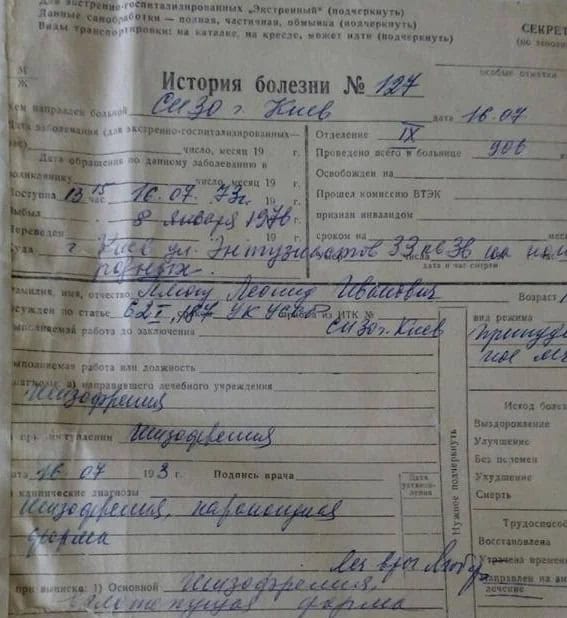 Для экстренно-госпитализированных „Экстренный" (подчеркнуть)
Данные санобработки — полная, частичная, обмывка (подчеркнуть)
Виды транспортировки: на каталке, на кресле, может идти (подчеркнуть)
СЕКРЕТ
М
Ж
История болезни № 127
особые отметки
Кем направлен больной СИЗО г. Киев дата 16.07
Дата заболевания (для экстренно-госпитализированных—
число, месяц 19 г.
Отделение IX
Дата обращения по данному заболеванию в
Проведено всего в больнице 906
поликлинику число, месяц 19 г.
Освобожден на
Поступил 13 15 час 16.07.73г. 19 г.
Прошел комиссию ВТЭК
Выбыл 8 января 1976 г.
признан инвалидом
Переведен
сроком на
Куда г. Киев ул. Энтузиастов 33 кв 38 на
родных.
число
дата и час смерти
Фамилия, имя, отчество Плющ Леонид Иванович Возраст
осужден по статье 62 I, 187 УК УССР из ИТК № СИЗО г. Киев
выполняемой работа до заключения
вид режима
принуди
ное ле
выполняемая работа или должность
диагноз: а) направившего лечебного учреждения
Шизофрения
Исход болез
Выздоровление
при поступлении Шизофрения
Улучшение
Без перемен
дата 16 07 1973 г. Подпись врача
Ухудшение
Смерть
Нужное подчеркнуть
Дата
установ-
ления
клинические диагнозы
Шизофрения, параноидная
форма
Трудоспособ
Восстановлена
Утрачена времен
Направлен на
лечение
при выписке: 1) Основной Шизофрения,
вялотекущая форма